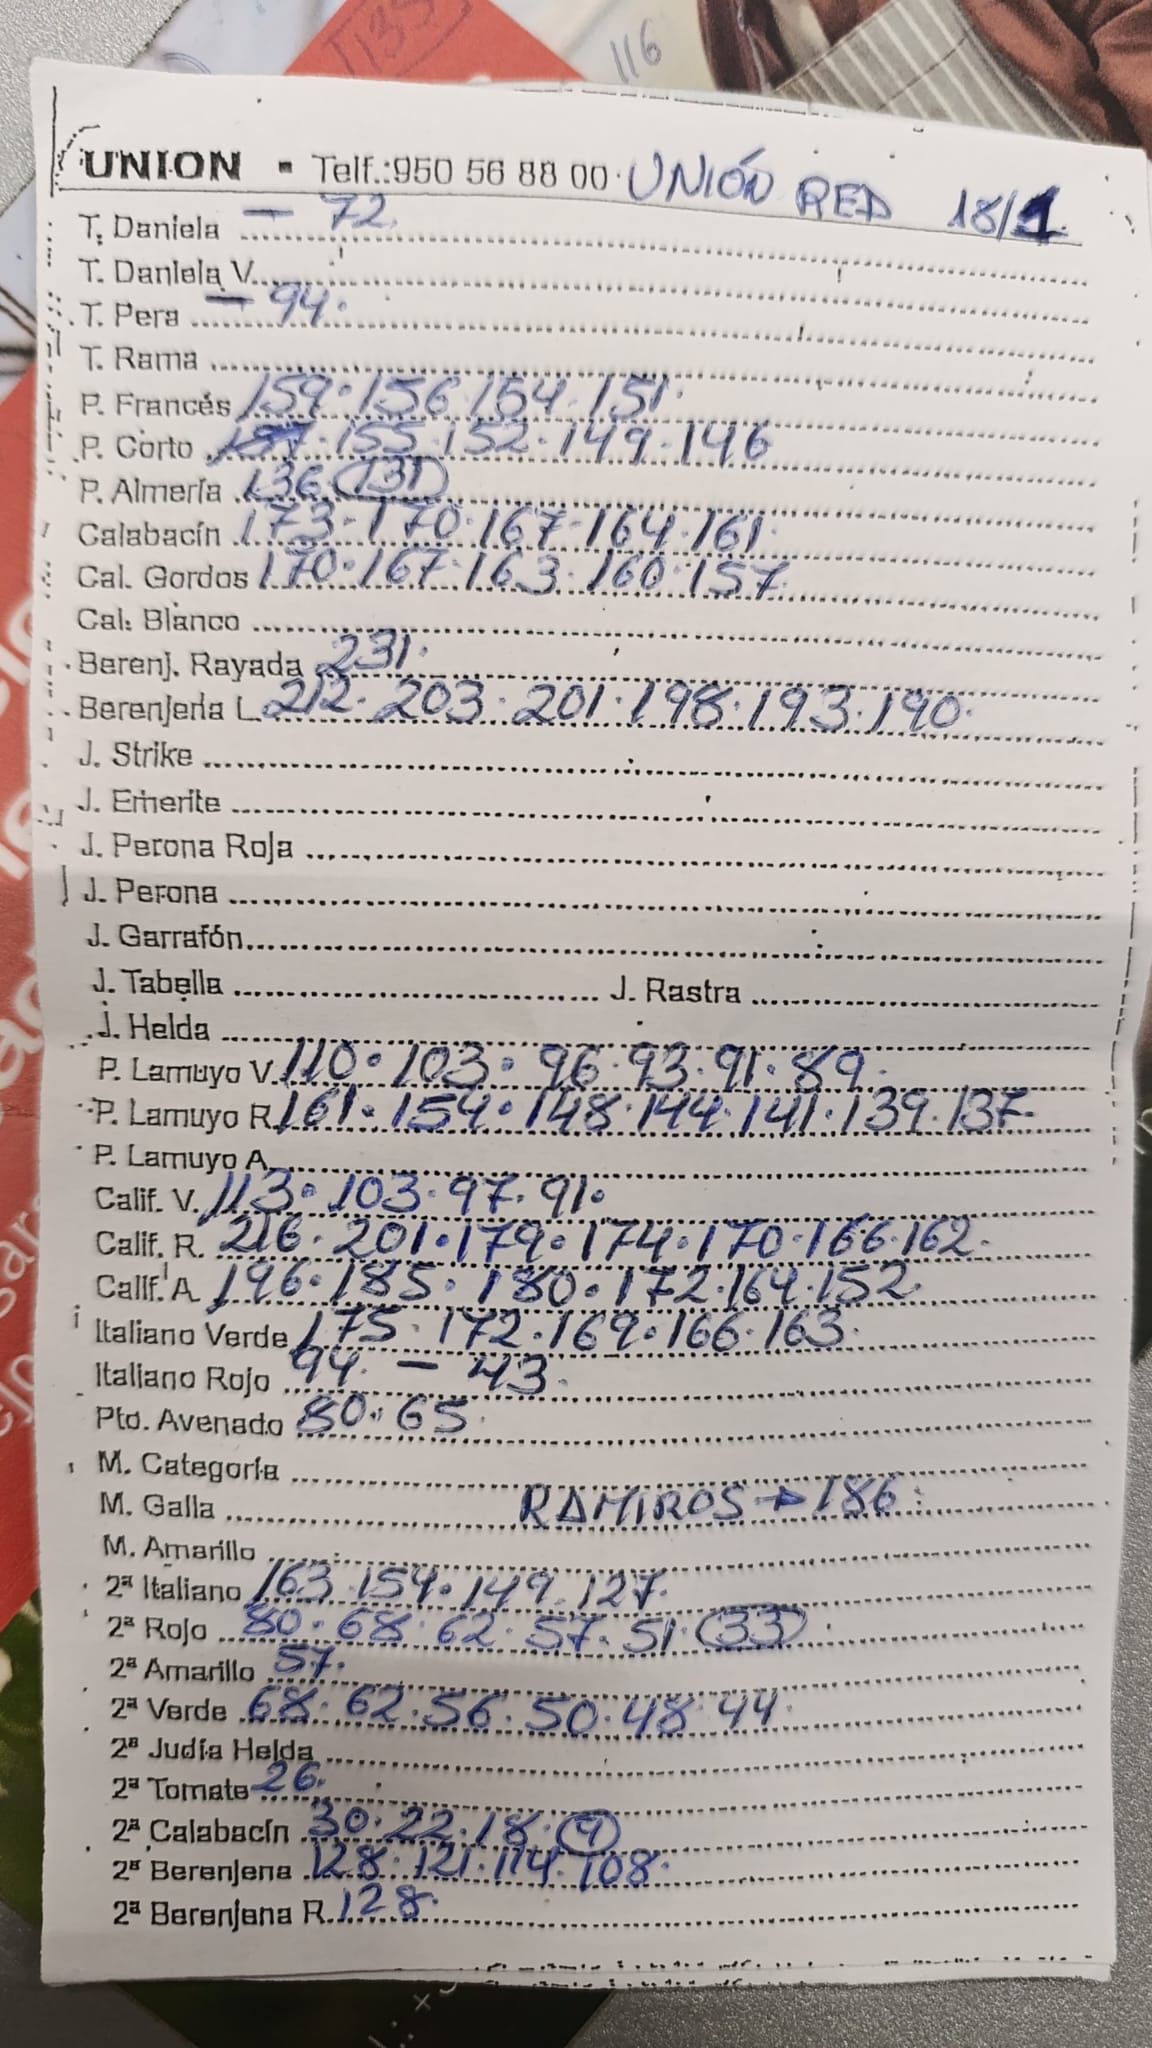 135
116
UNION - Telf.:950 56 88 00 · UNIÓN RED 18/1
T. Daniela — 72.
T. Daniela V.
T. Pera — 94.
T. Rama
P. Francés 159 · 156 · 154 · 151.
P. Corto 157 · 155 · 152 · 149 · 146
P. Almería 136 (131)
Calabacín 173 · 170 · 167 · 164 · 161.
Cal. Gordos 170 · 167 · 163 · 160 · 157
Cal. Blanco
Berenj. Rayada 231.
Berenjena L. 212 · 203 · 201 · 198 · 193 · 190.
J. Strike
J. Emerite
J. Perona Roja
J. Perona
J. Garrafón
J. Tabella J. Rastra
J. Helda
P. Lamuyo V. 110 · 103 · 96 · 93 · 91 · 89.
P. Lamuyo R. 161 · 154 · 148 · 144 · 141 · 139 · 137.
P. Lamuyo A.
Calif. V. 113 · 103 · 97 · 91.
Calif. R. 216 · 201 · 179 · 174 · 170 · 166 · 162.
Calif. A. 196 · 185 · 180 · 172 · 164 · 152.
Italiano Verde 175 · 172 · 169 · 166 · 163.
Italiano Rojo 94. — 43.
Pto. Avenado 80 · 65.
M. Categoría
M. Galla RAMIROS → 186.
M. Amarillo
2ª Italiano 163 · 154 · 149 · 127.
2ª Rojo 80 · 68 · 62 · 57 · 51 (33)
2ª Amarillo 57.
2ª Verde 68 · 62 · 56 · 50 · 48 · 44.
2ª Judía Helda
2ª Tomate 26.
2ª Calabacín 30 · 22 · 18 · (9)
2ª Berenjena 128 · 121 · 114 · 108.
2ª Berenjena R. 128.